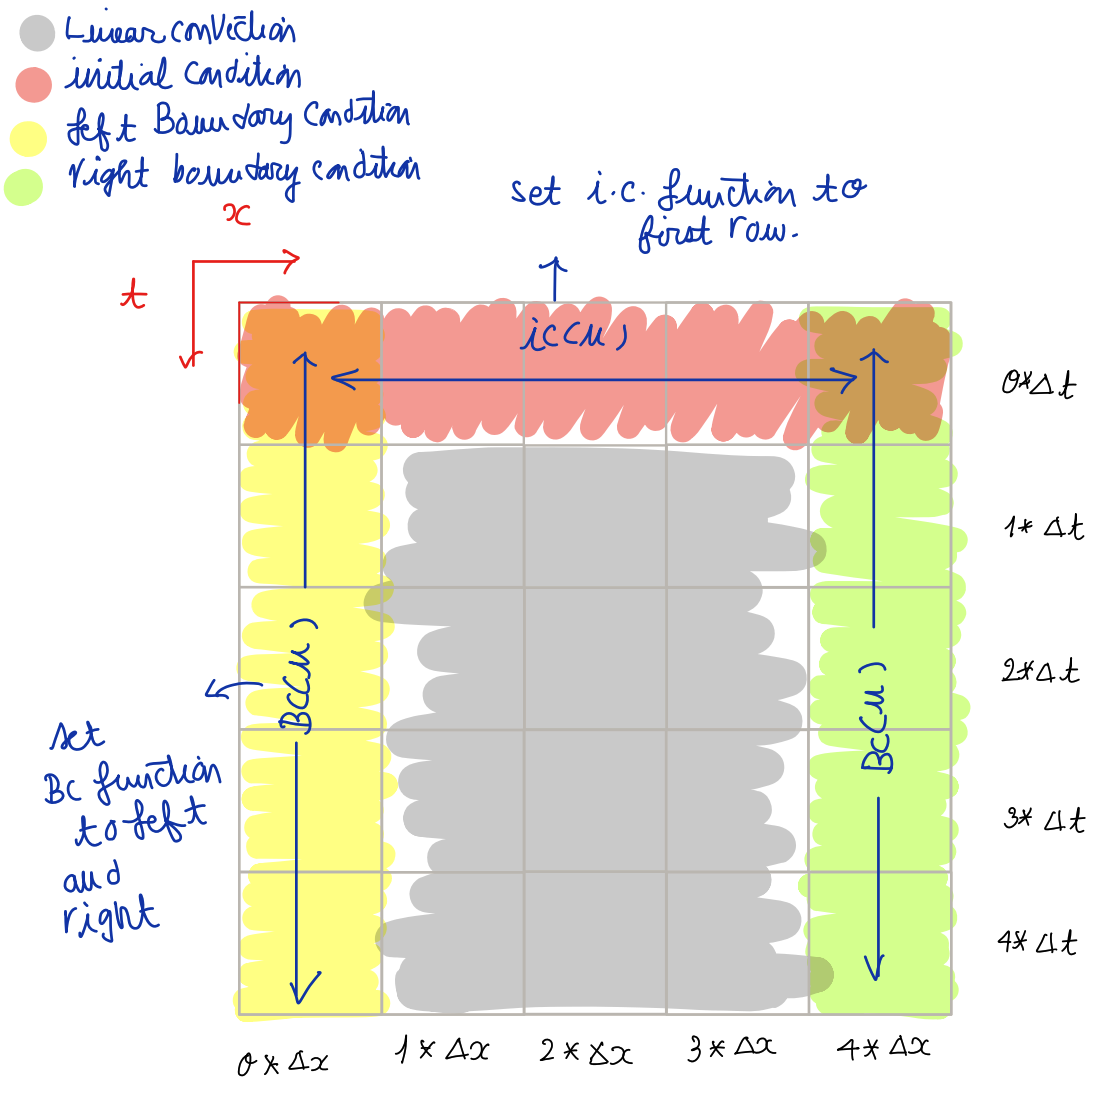 Linear convection
initial condition
left Boundary condition
right boundary condition
set i.c. function to
first row.
x
t
ic(u)
0*Δt
1*Δt
2*Δt
3*Δt
4*Δt
BC(u)
BC(u)
set
BC function
to left
and
right
0*Δx
1*Δx
2*Δx
3*Δx
4*Δx